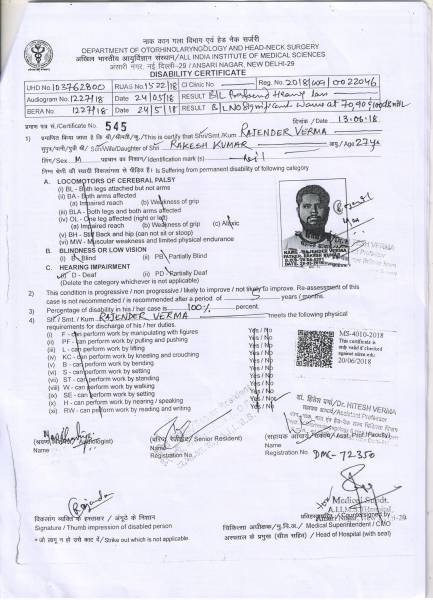 नाक कान गला विभाग एवं हेड नेक सर्जरी
DEPARTMENT OF OTORHINOLARYNGOLOGY AND HEAD-NECK SURGERY
अखिल भारतीय आयुर्विज्ञान संस्थान/ALL INDIA INSTITUTE OF MEDICAL SCIENCES
अंसारी नगर, नई दिल्ली-29 / ANSARI NAGAR, NEW DELHI-29
DISABILITY CERTIFICATE
UHD No. 103762800 RUAS No. 1522/18 Cl Clinic No. Reg. No. 2018/009/0022046
Audiogram No. 1227/18 Date 24/05/18 RESULT B/L Profound Hearing loss
BERA No. 1227/18 Date 24/5/18 RESULT B/L NO Significant waves at 70, 90
प्रमाण पत्र सं./Certificate No. 545 दिनांक / Date 13-06-18
1) प्रमाणित किया जाता है कि श्री/श्रीमती/कु./This is certify that Shri/Smt./Kum RAJENDER VERMA
सुपुत्र/पत्नी/पुत्री श्री/Son/Wife/Daughter of Shri RAKESH KUMAR आयु/Age 27 yrs
लिंग/Sex M पहचान का निशान/Identification mark (s) Nil
निम्न श्रेणी की स्थायी विकलांगता से पीड़ित है। Is Suffering from permanent disability of following category
A. LOCOMOTORS OF CEREBRAL PALSY
(i) BL - Both legs attached but not arms
(ii) BA - Both arms affected
(a) Impaired reach (b) Weakness of grip
(iii) BLA - Both legs and both arms affected
(iv) OL - One leg affected (right or left)
(a) Impaired reach (b) Weakness of grip (c) Ataxic
(v) BH - Stiff Back and hip (can not sit or stoop)
(vi) MW - Muscular weakness and limited physical endurance
B. BLINDNESS OR LOW VISION
(i) B - Blind (ii) PB - Partially Blind
C. HEARING IMPAIRMENT
(i) D - Deaf (ii) PD - Partially Deaf
(Delete the category whichever is not applicable)
NAME: RAJENDER VERMA
FATHER: RAKESH KUMAR
2) This condition is progressive / non progressive / likely to improve / not likely to improve. Re-assessment of this
case is not recommended / is recommended after a period of 5 years / months.
3) Percentage of disability in his / her case is 100% percent.
4) Sh. / Smt. / Kum RAJENDER VERMA meets the following physical
requirements for discharge of his / her duties.
(i) F - can perform work by manipulating with figures Yes / No
(ii) PF - can perform work by pulling and pushing Yes / No
(iii) L - can perform work by lifting Yes / No
(iv) KC - can perform work by kneeling and crouching Yes / No
(v) B - can perform work by bending Yes / No
(vi) S - can perform work by setting Yes / No
(vii) ST - can perform work by standing Yes / No
(viii) W - can perform work by walking Yes / No
(ix) SE - can perform work by setting Yes / No
(x) H - can perform work by hearing / speaking Yes / No
(xi) RW - can perform work by reading and writing Yes / No
MS-4010-2018
This certificate is
only valid if checked
against
20/06/2018
डा. हितेश वर्मा/Dr. HITESH VERMA
सहायक आचार्य/Assistant Professor
Name
(वरिष्ठ रेजिडेंट / Senior Resident)
Name
Registration No.
Name
Registration No. DMC-72350
Medical Supdt.
A.I.I.M.S. Hospital
विकलांग व्यक्ति के हस्ताक्षर / अंगूठे के निशान
Signature / Thumb impression of disabled person
* जो लागू न हो उसे काट दें / Strike out which is not applicable.
Countersigned by
चिकित्सा अधीक्षक/मु.चि.अ./ Medical Superintendent / CMO
अस्पताल के प्रमुख (सील सहित) / Head of Hospital (with seal)